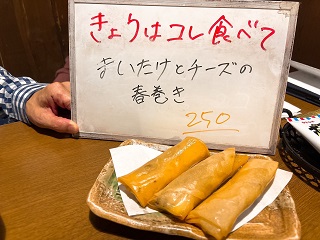 きょうはコレ食べて
まいたけとチーズの
春巻き
250